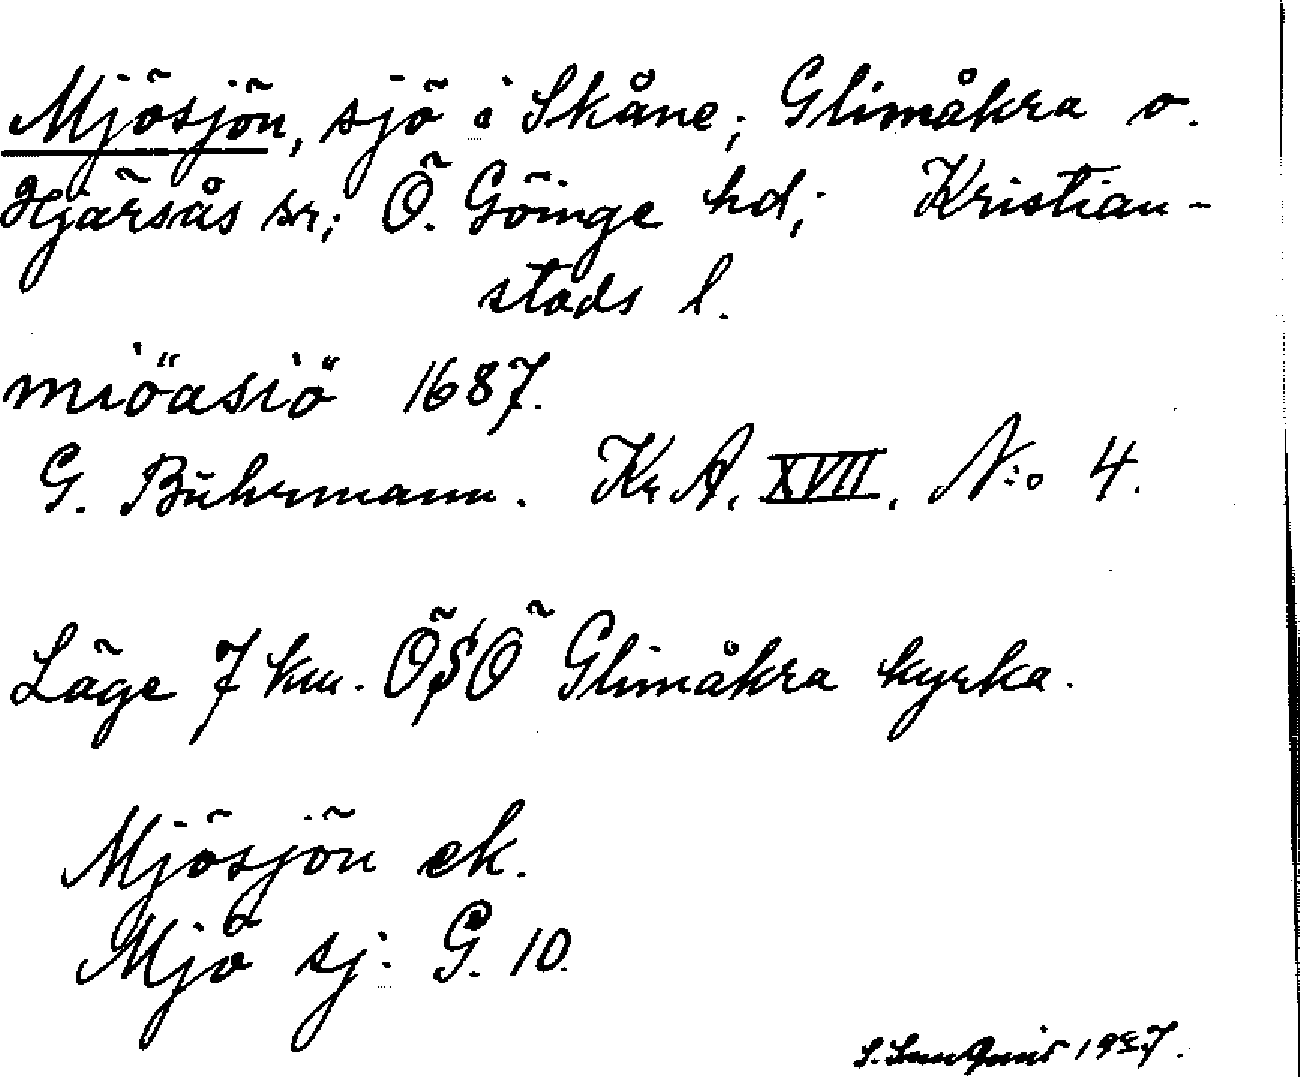 Mjösjön, sjö i Skåne; Glimåkra o.
Hjärsås sr; Ö. Göinge hd; Kristian-
stads l.
miöasiö 1687.
G. Buhrmann. Kr A. XVII. N:o 4.
Läge 7 km. ÖSÖ Glimåkra kyrka.
Mjösjön ek.
Mjö sj: G. 10.